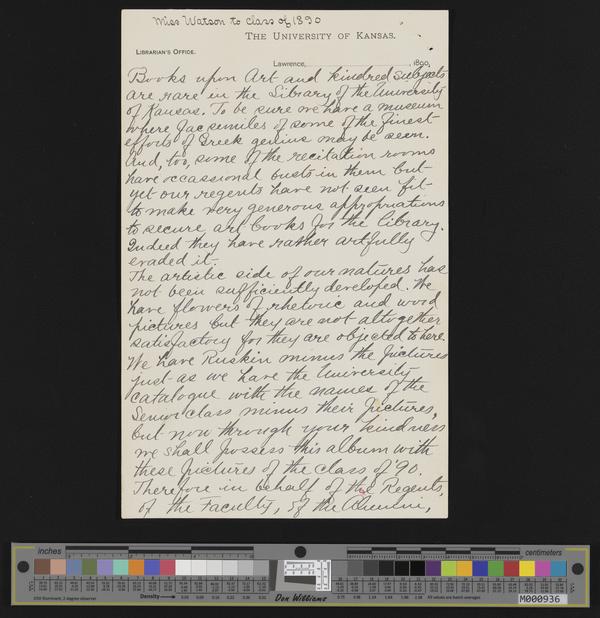 Miss Watson to class of 1890
THE UNIVERSITY OF KANSAS.
LIBRARIAN'S OFFICE.
Lawrence, 1890,
Books upon Art and kindred subjects
are rare in the Library of the University
of Kansas. To be sure we have a museum
where facsemiles of some of the finest
efforts of Greek genius may be seen.
And, too, some of the recitation rooms
have occassional busts in them but
yet our regents have not seen fit
to make very generous appropriations
to secure art books for the library.
Indeed they have rather artfully
evaded it.
The artistic side of our natures has
not been sufficiently developed. We
have flowers of rhetoric and word
pictures but they are not altogether
satisfactory for they are objected to here.
We have Ruskin minus the pictures
just as we have the University
catalogue with the names of the
Senior class minus their pictures,
but now through your kindness
we shall possess this album with
these pictures of the class of '90.
Therefore in behalf of the Regents,
of the Faculty, of the Alumni,
inches
centimeters
Density
Don Williams
M000936